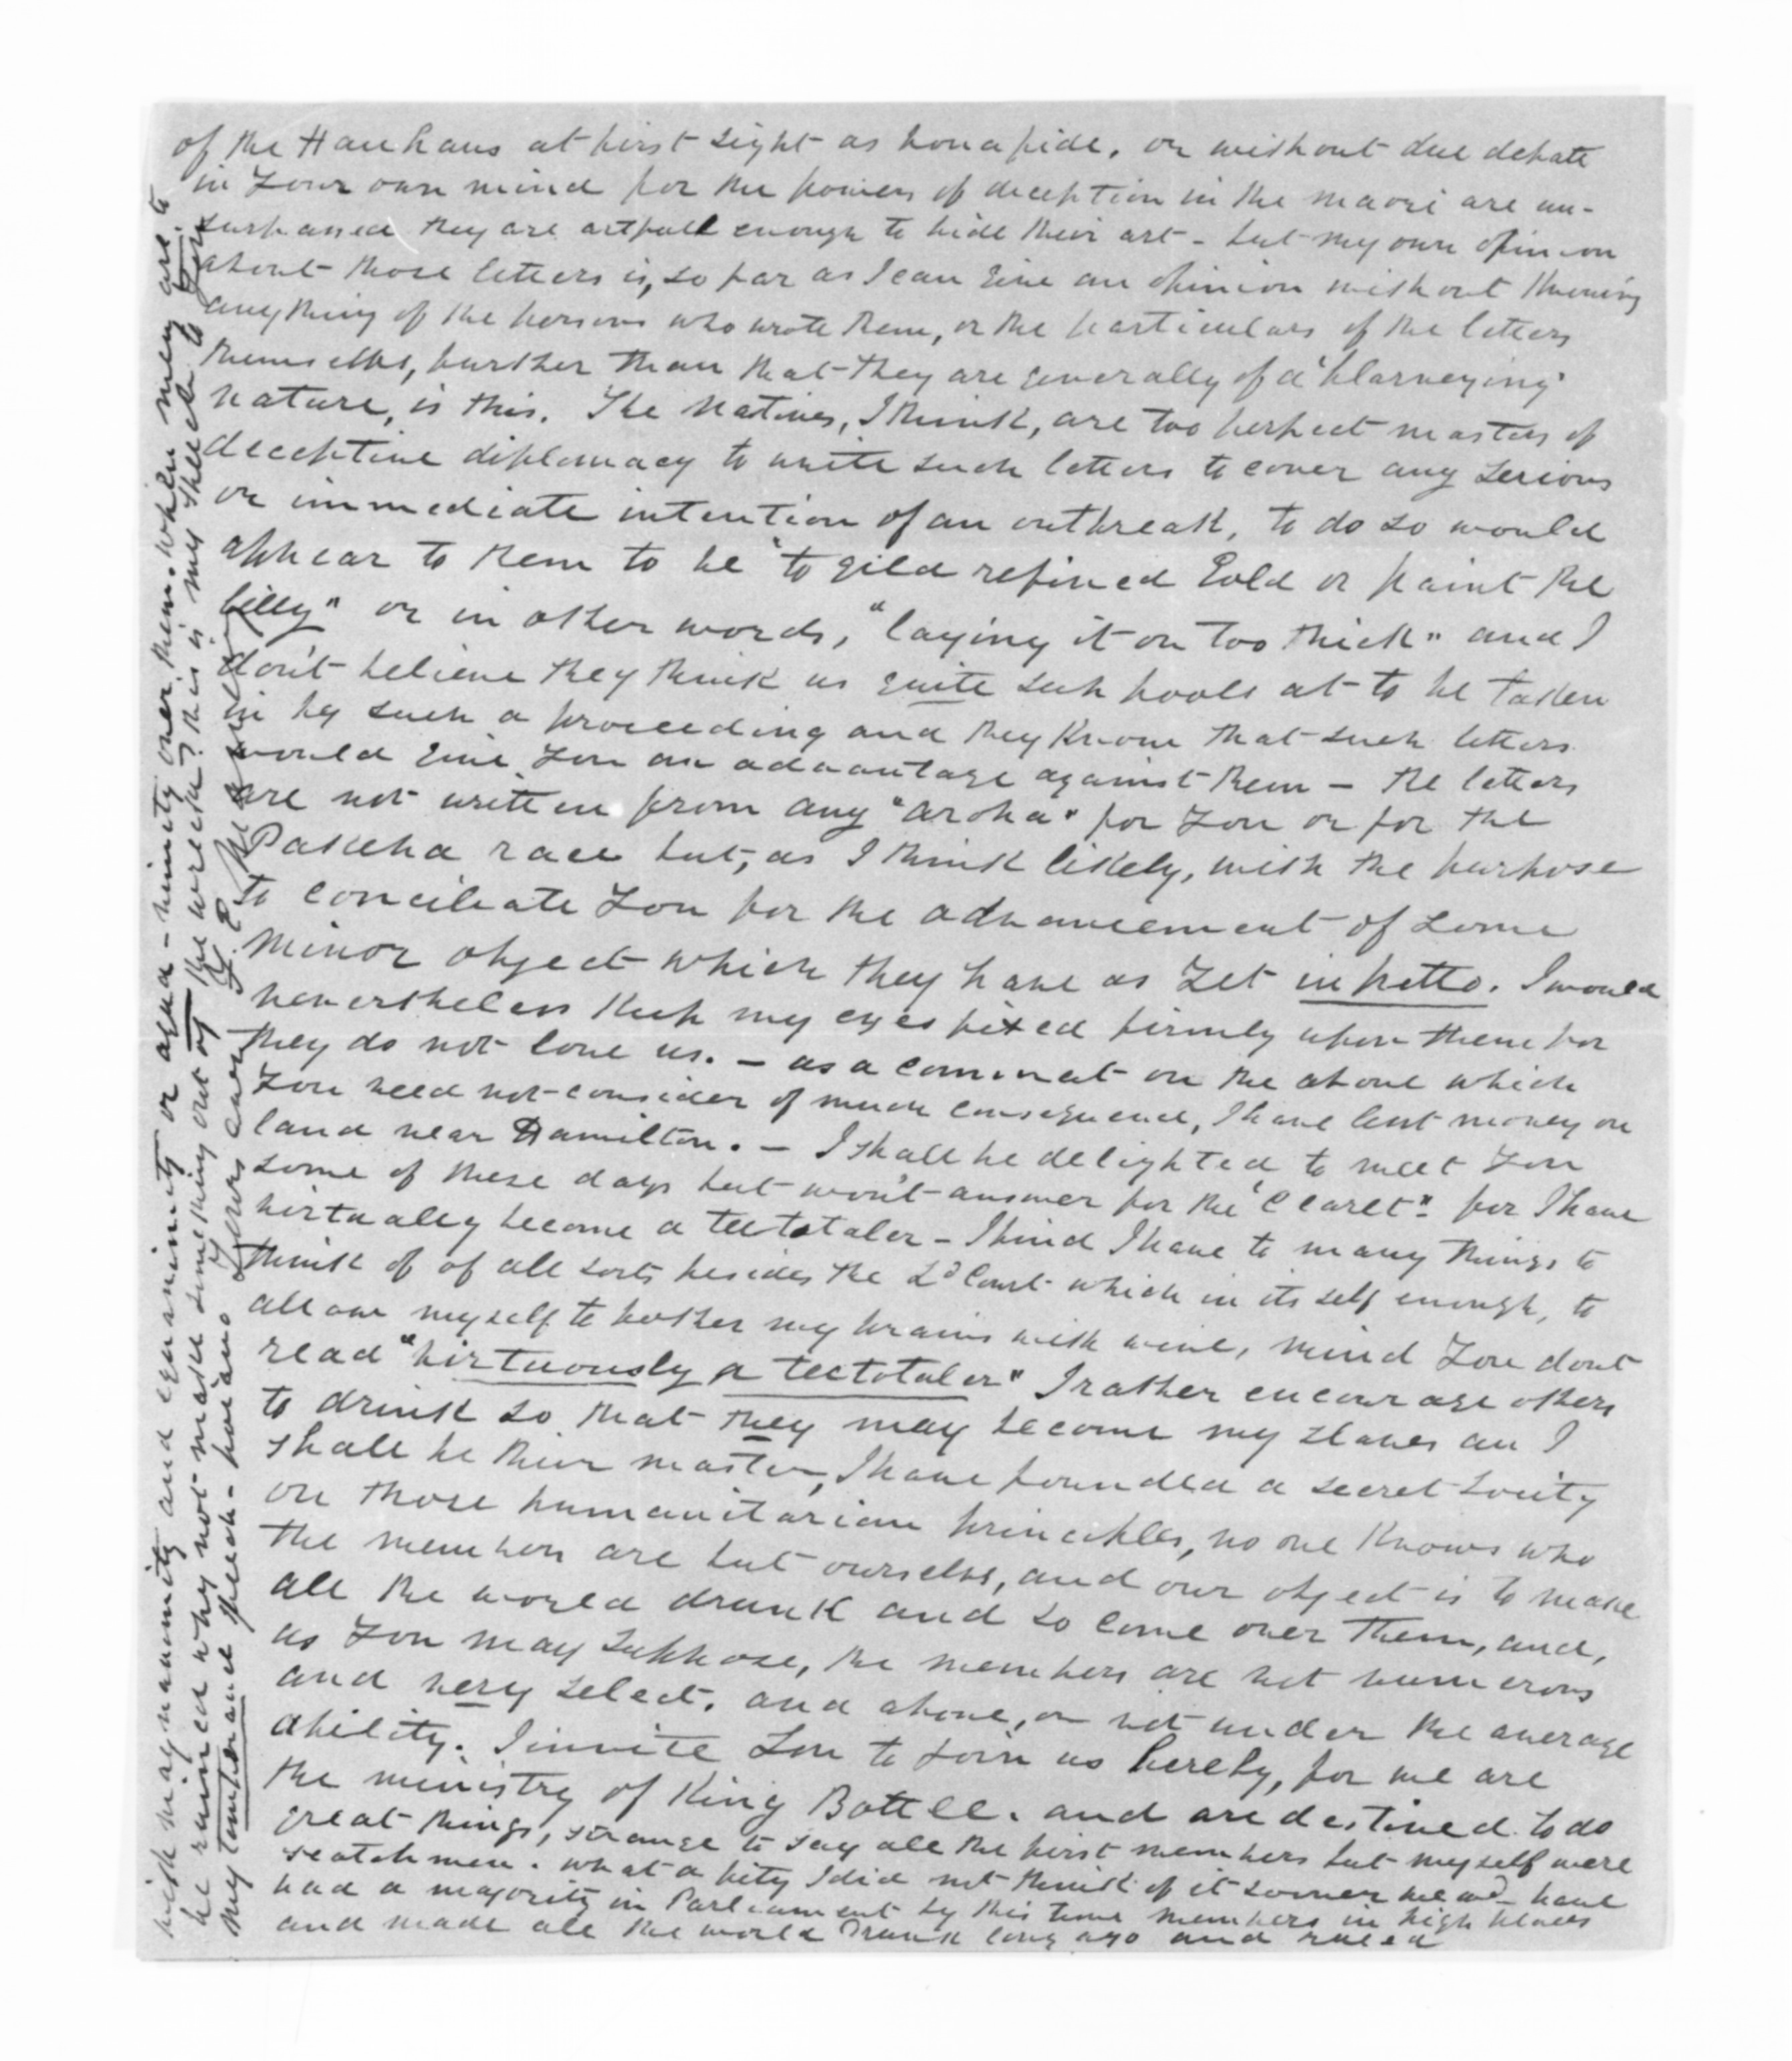 of the Hauhaus at first sight as bona fide, or without due debate
in your own mind for the powers of deception in the maori are un-
surpassed they are artfull enough to hide their art - but my own opinion
about those letters is, so far as I can give an opinion without knowing
anything of the persons who wrote them, or the particulars of the letters
themselves, further than that they are generally of a "blarneying"
nature, is this. The natives, I think, are too perfect masters of
deceptive diplomacy to write such letters to cover any serious
or immediate intention of an outbreak, to do so would
appear to them to be "to gild refined gold or paint the
lilly" or in other words, "laying it on too thick" and I
don't believe they think us quite such fools at to be taken
in by such a proceeding and they know that such letters
would give you an advantage against them - the letters
are not written from any "aroha" for you or for the
Pakeha race but, as I think likely, with the purpose
to conciliate you for the advancement of some
minor object which they have as yet in petto. I would
nevertheless keep my eyes fixed firmly upon them for
they do not love us. - as a comment on the above which
you need not consider of much consequence, I have lent money on
land near Hamilton. - I shall be delighted to meet you
some of these days but won't answer for the "Claret" for I have
virtually become a teetotaler - I find I have to many things to
think of of all sorts besides the Ld Court which in its self enough, to
allow myself to bother my brains with wine, mind you dont
read "virtuously a teetotaler" I rather encourage others
to drink so that they may become my slaves an I
shall be their master, I have founded a secret society
on those humanitarian principles, no one knows who
the members are but ourselves, and our object is to make
all the world drunk and so come over them, and,
as you may suppose, the members are not numerous
and very select. and above, or not under the average
ability. I invite you to join us hereby, for we are
the ministry of King Bottle. and are destined to do
great things, strange to say all the first members but myself were
scotchmen. what a pity I did not think of it sooner we wd have
had a majority in Parliament by this time members in high places
and made all the world drunk long ago and ruled
with magnanimity and equanimity or aqua-nimity over them. when men are to
be ruined why not make something out of the wreck? this is my speech to you
my temperance speech - hoivano yours ever F. E. Maning